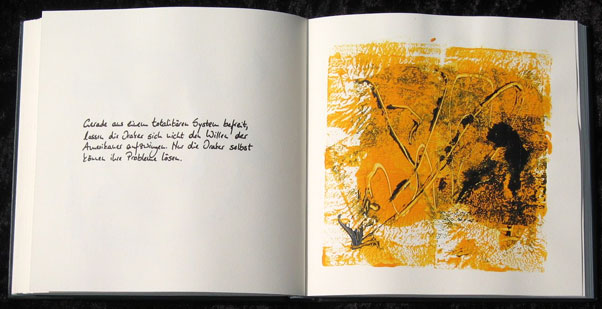 Gerade aus einem totalitären System befreit,
lassen die Iraker sich nicht den Willen der
Amerikaner aufzwingen. Nur die Iraker selbst
können ihre Probleme lösen.